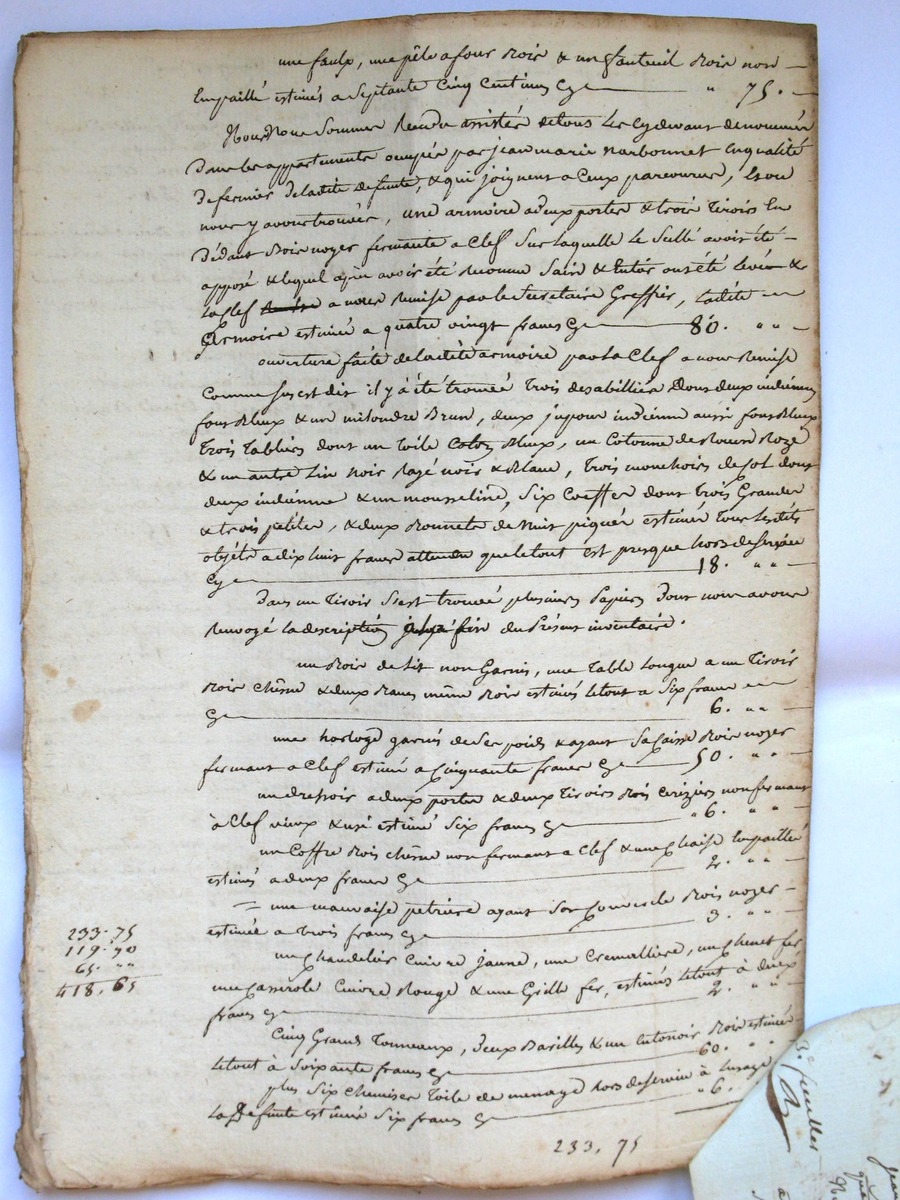 une faulx, une pêle a four Bois & un fauteuil Bois non
Empaillé estimés a Septante Cinq Centimes Cy " 75.
Nous Nous Sommes Rendu assistés de tous les Cydevant denommés
Dans les appartements occupés par jean marie Narbonnet En qualité
De fermier De laditte defunte, & qui joignent a Ceux parcourus, Et ou
nous y avons trouvés, une armoire a deux portes & trois Tiroirs En
Dédant Bois noyer fermante a Clef Sur laquelle le Scellé avoit été
apposé & lequel après avoir été Reconnu Sain & Entier ont été levés &
la Clef a nous Remise par le Secretaire Greffier, laditte
Armoire estimée a quatre vingt francs Cy 80. " "
ouverture faitte de laditte armoire par la Clef a nous Remise
Comme Sus est dit il y a été trouvée Trois desabilliés Dont deux indiennes
fons Bleux & une Brun, deux jupons indienne aussi fons Bleux
Trois Tabliers dont un Toile Coton Bleux, un Cotonne de Rouen Roze
& un autre Lin noir Rayé noir & Blanc, Trois mouchoirs de Col dont
deux indienne & un mousseline, Six Coeffes dont Trois Grandes
& trois petites, & deux Bonnets de Nuit piqués estimés Tous lesdits
objéts a dix huit francs attendu que le tout est presque hors de Service
Cy 18. " "
Dans un Tiroir S'est trouvée plusieurs Papiers Dont nous avons
Renvoyé la description a la fin du Présent inventaire.
un Bois de Lit non Garnis, une Table Longue a un Tiroir
Bois Chêne & deux Bancs même Bois estimés le tout a Six francs
Cy 6. " "
une horloge garnis de Ses poids & ayant Sa Caisse Bois noyer
fermant a Clef estimée a Cinquante francs Cy 50. " "
un dressoir a deux portes & deux Tiroirs Bois Cerizier non fermant
à Clef vieux & usé estimé Six francs Cy " 6. " "
un Coffre Bois Chêne non fermant a Clef & une Chaise Empaillée
estimés a deux francs Cy 2. " "
= une mauvaise pétrière ayant Son Couvercle Bois noyer
estimée a Trois francs Cy 3. " "
un Chandelier Cuivre jaune, une Cremallière, un Chenet fer
une Casserole Cuivre Rouge & une Grille fer, estimés le tout à deux
francs Cy 2. " "
Cinq Grands Tonneaux, deux Barilles & un Entonoir Bois estimés
le tout à Soixante francs Cy 60. " "
plus Six Chemises Toile de menage hors de Service à l'usage
la Defunte estimée Six francs Cy " 6. "
233. 75
233. 75
119. 90
65. " "
418. 65
3e feuilles